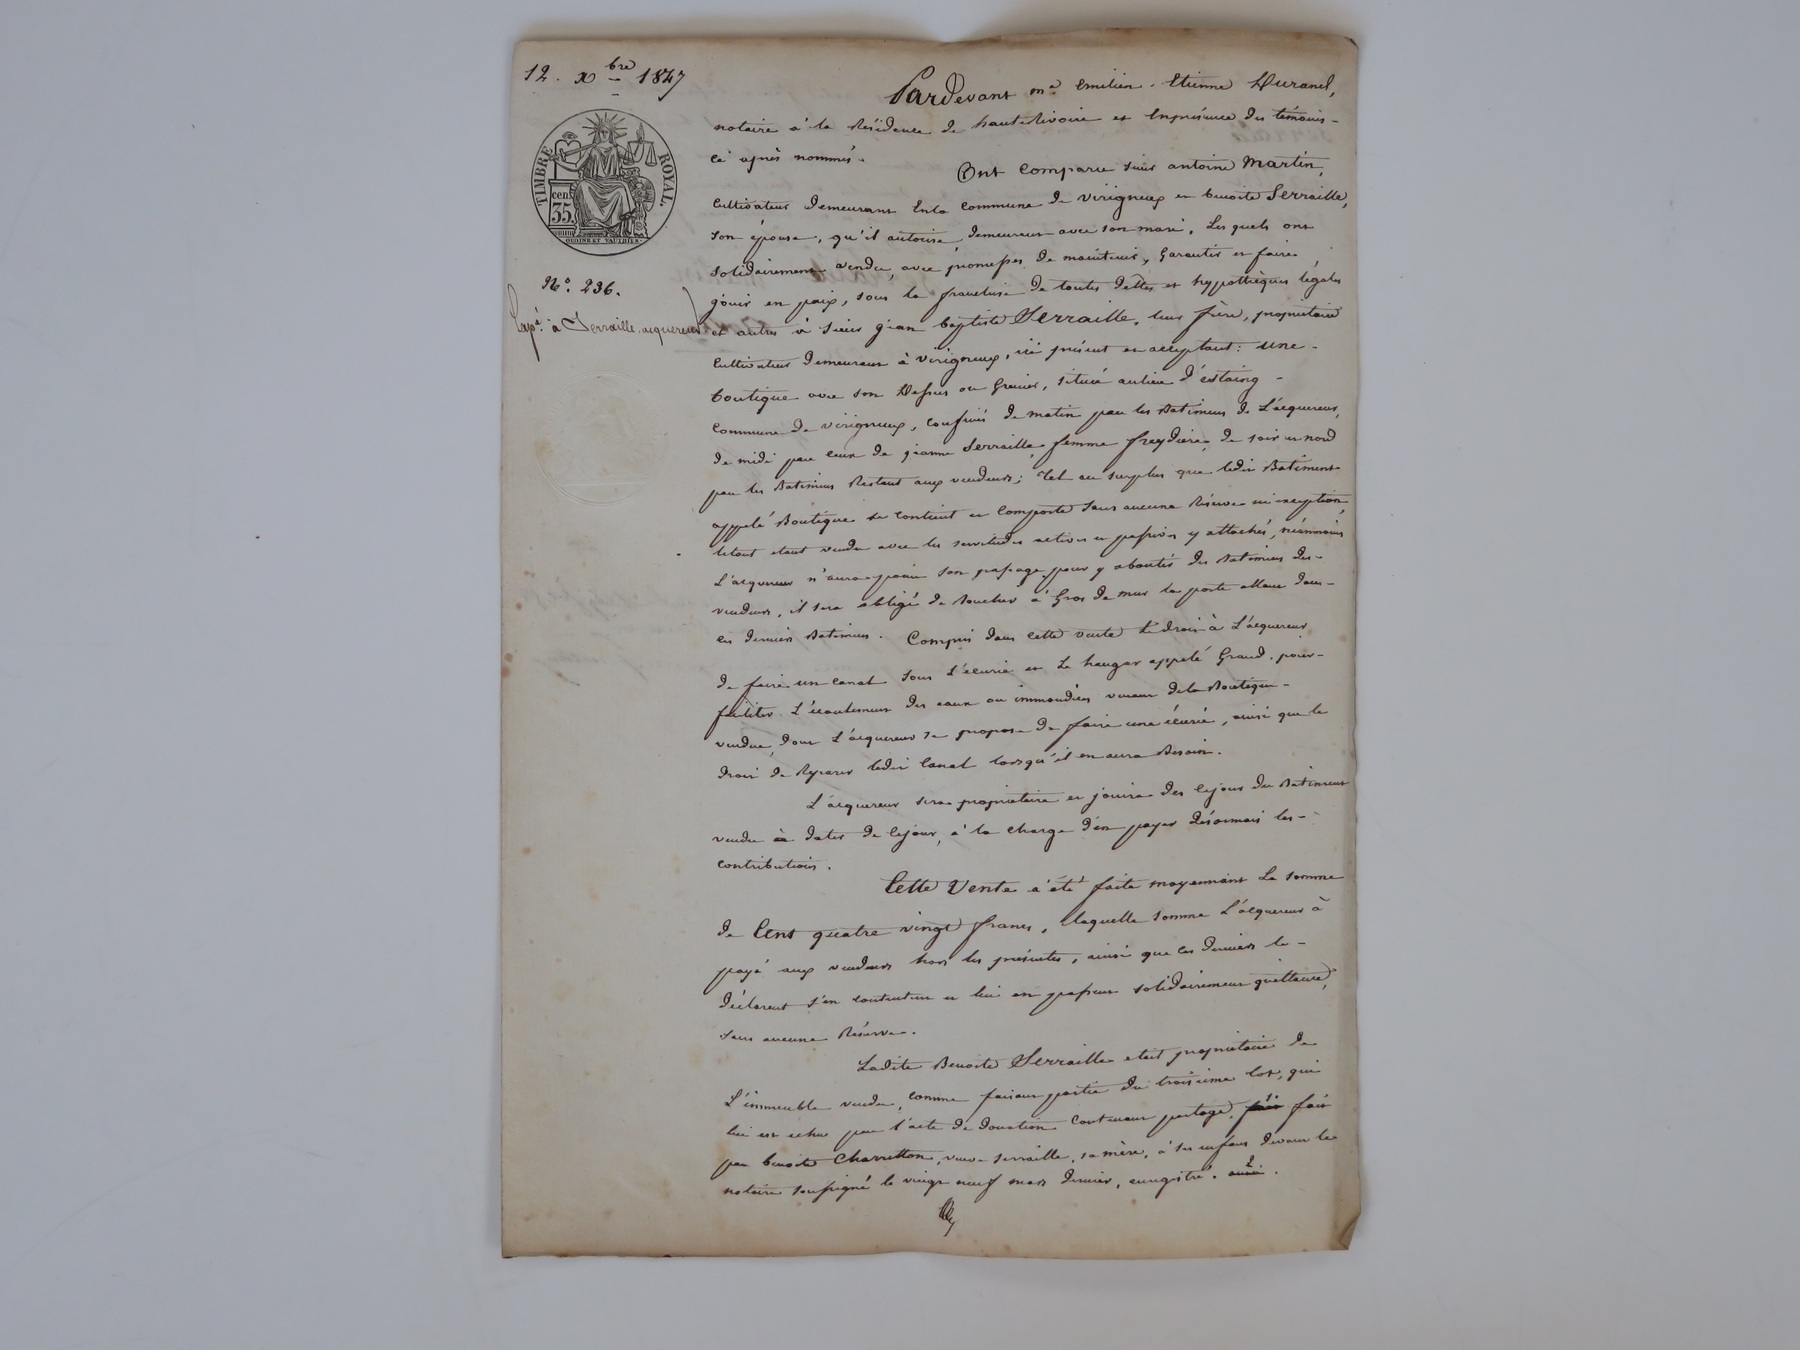 12. Xbre 1847
Pardevant me Emilien Etienne Durand,
notaire à la Résidence de hauterivoire et Enprésence des témoins
ci après nommés.
Ont comparu sieur antoine Martin,
Cultivateur Demeurant Enla Commune de virigneux et benoite Serraille,
son épouse, qu'il autorise, demeurant avec son mari, Lesquels ont
solidairement vendu, avec promesses de maintenir, Garantir et faire
jouir en paix, sous la franchise de toutes dettes et hypothèques légales
et autres à sieur jean baptiste Serraille, leur frère, propriétaire
Cultivateur Demeurant à virigneux, ici présent et acceptant : une
boutique avec son Dessus ou Grenier, situé aulieu d'estaing
Commune de virigneux, confiné de matin par les Batimens de L'acquereur,
de midi par ceux de jeanne Serraille femme freydière, de soir et nord
par les Batimens Restant aux vendeurs; tel au surplus que ledit Batiment
appelé Boutique se contient et comporte sans aucune Réserve ni exception,
letout étant vendu avec les servitudes actives et passives y attachés, néanmoins
L'acquereur n'aura point son passage pour y aboutir des Batimens des
vendeurs, il sera obligé de boucher à Gros de mur la porte allant dans
ces derniers Batimens. Compris dans cette vente le droit à L'acquereur
de faire un canal sous L'écurie et Le hangar appelé Grand, pour
faciliter L'écoulement des eaux ou immondices venant dela Boutique
vendue, dont L'acquereur se propose de faire une écurie, ainsi que le
droit de Réparer ledit Canal lorsqu'il en aura Besoin.
L'acquereur sera propriétaire et jouira dès cejour du Batiment
vendu à dater de cejour, à la charge d'en payer désormais les
contributions.
Cette Vente a été faite moyennant La somme
de Cent quatre vingt francs, laquelle somme L'acquereur à
payé aux vendeurs hors les présentes, ainsi que ces derniers le
déclarent s'en contentent et lui en passent solidairement quittance,
sans aucune Réserve.
Ladite Benoite Serraille était propriétaire de
L'immeuble vendu, comme faisant partie du troisième lot, qui
lui est échu par l'acte de donation contenant partage, fait fait
par benoite Charretton, veuve Serraille, sa mère, à ses enfans devant le
notaire soussigné le vingt neuf mars dernier, enregistré.
TIMBRE ROYAL.
cen.
35.
OUDINE ET VAUTHIER
No. 236.
Expé. à Serraille, acquereur